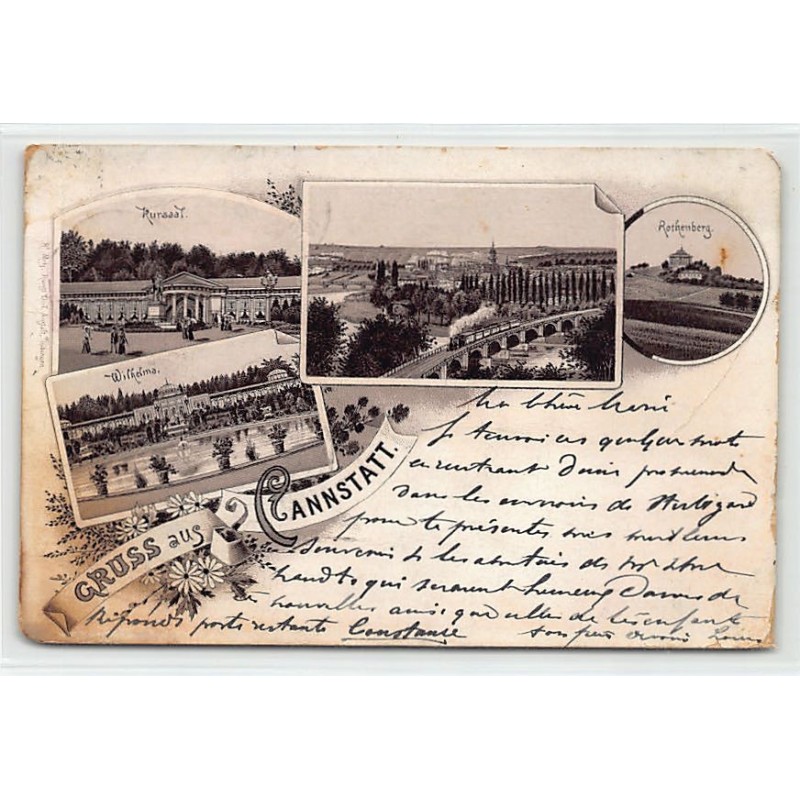 Kursaal.
Rothenberg.
Wilhelma.
GRUSS aus CANNSTATT.
Ma chère Marie
Je t'envoie ces quelques mots
en rentrant d'une promenade
dans les environs de Stuttgard
pour te présenter mes meilleurs
souvenirs
qui seraient heureux d'avoir de
tes nouvelles ainsi que celles de tes enfants
Réponds poste restante Constance
ton frère Louis